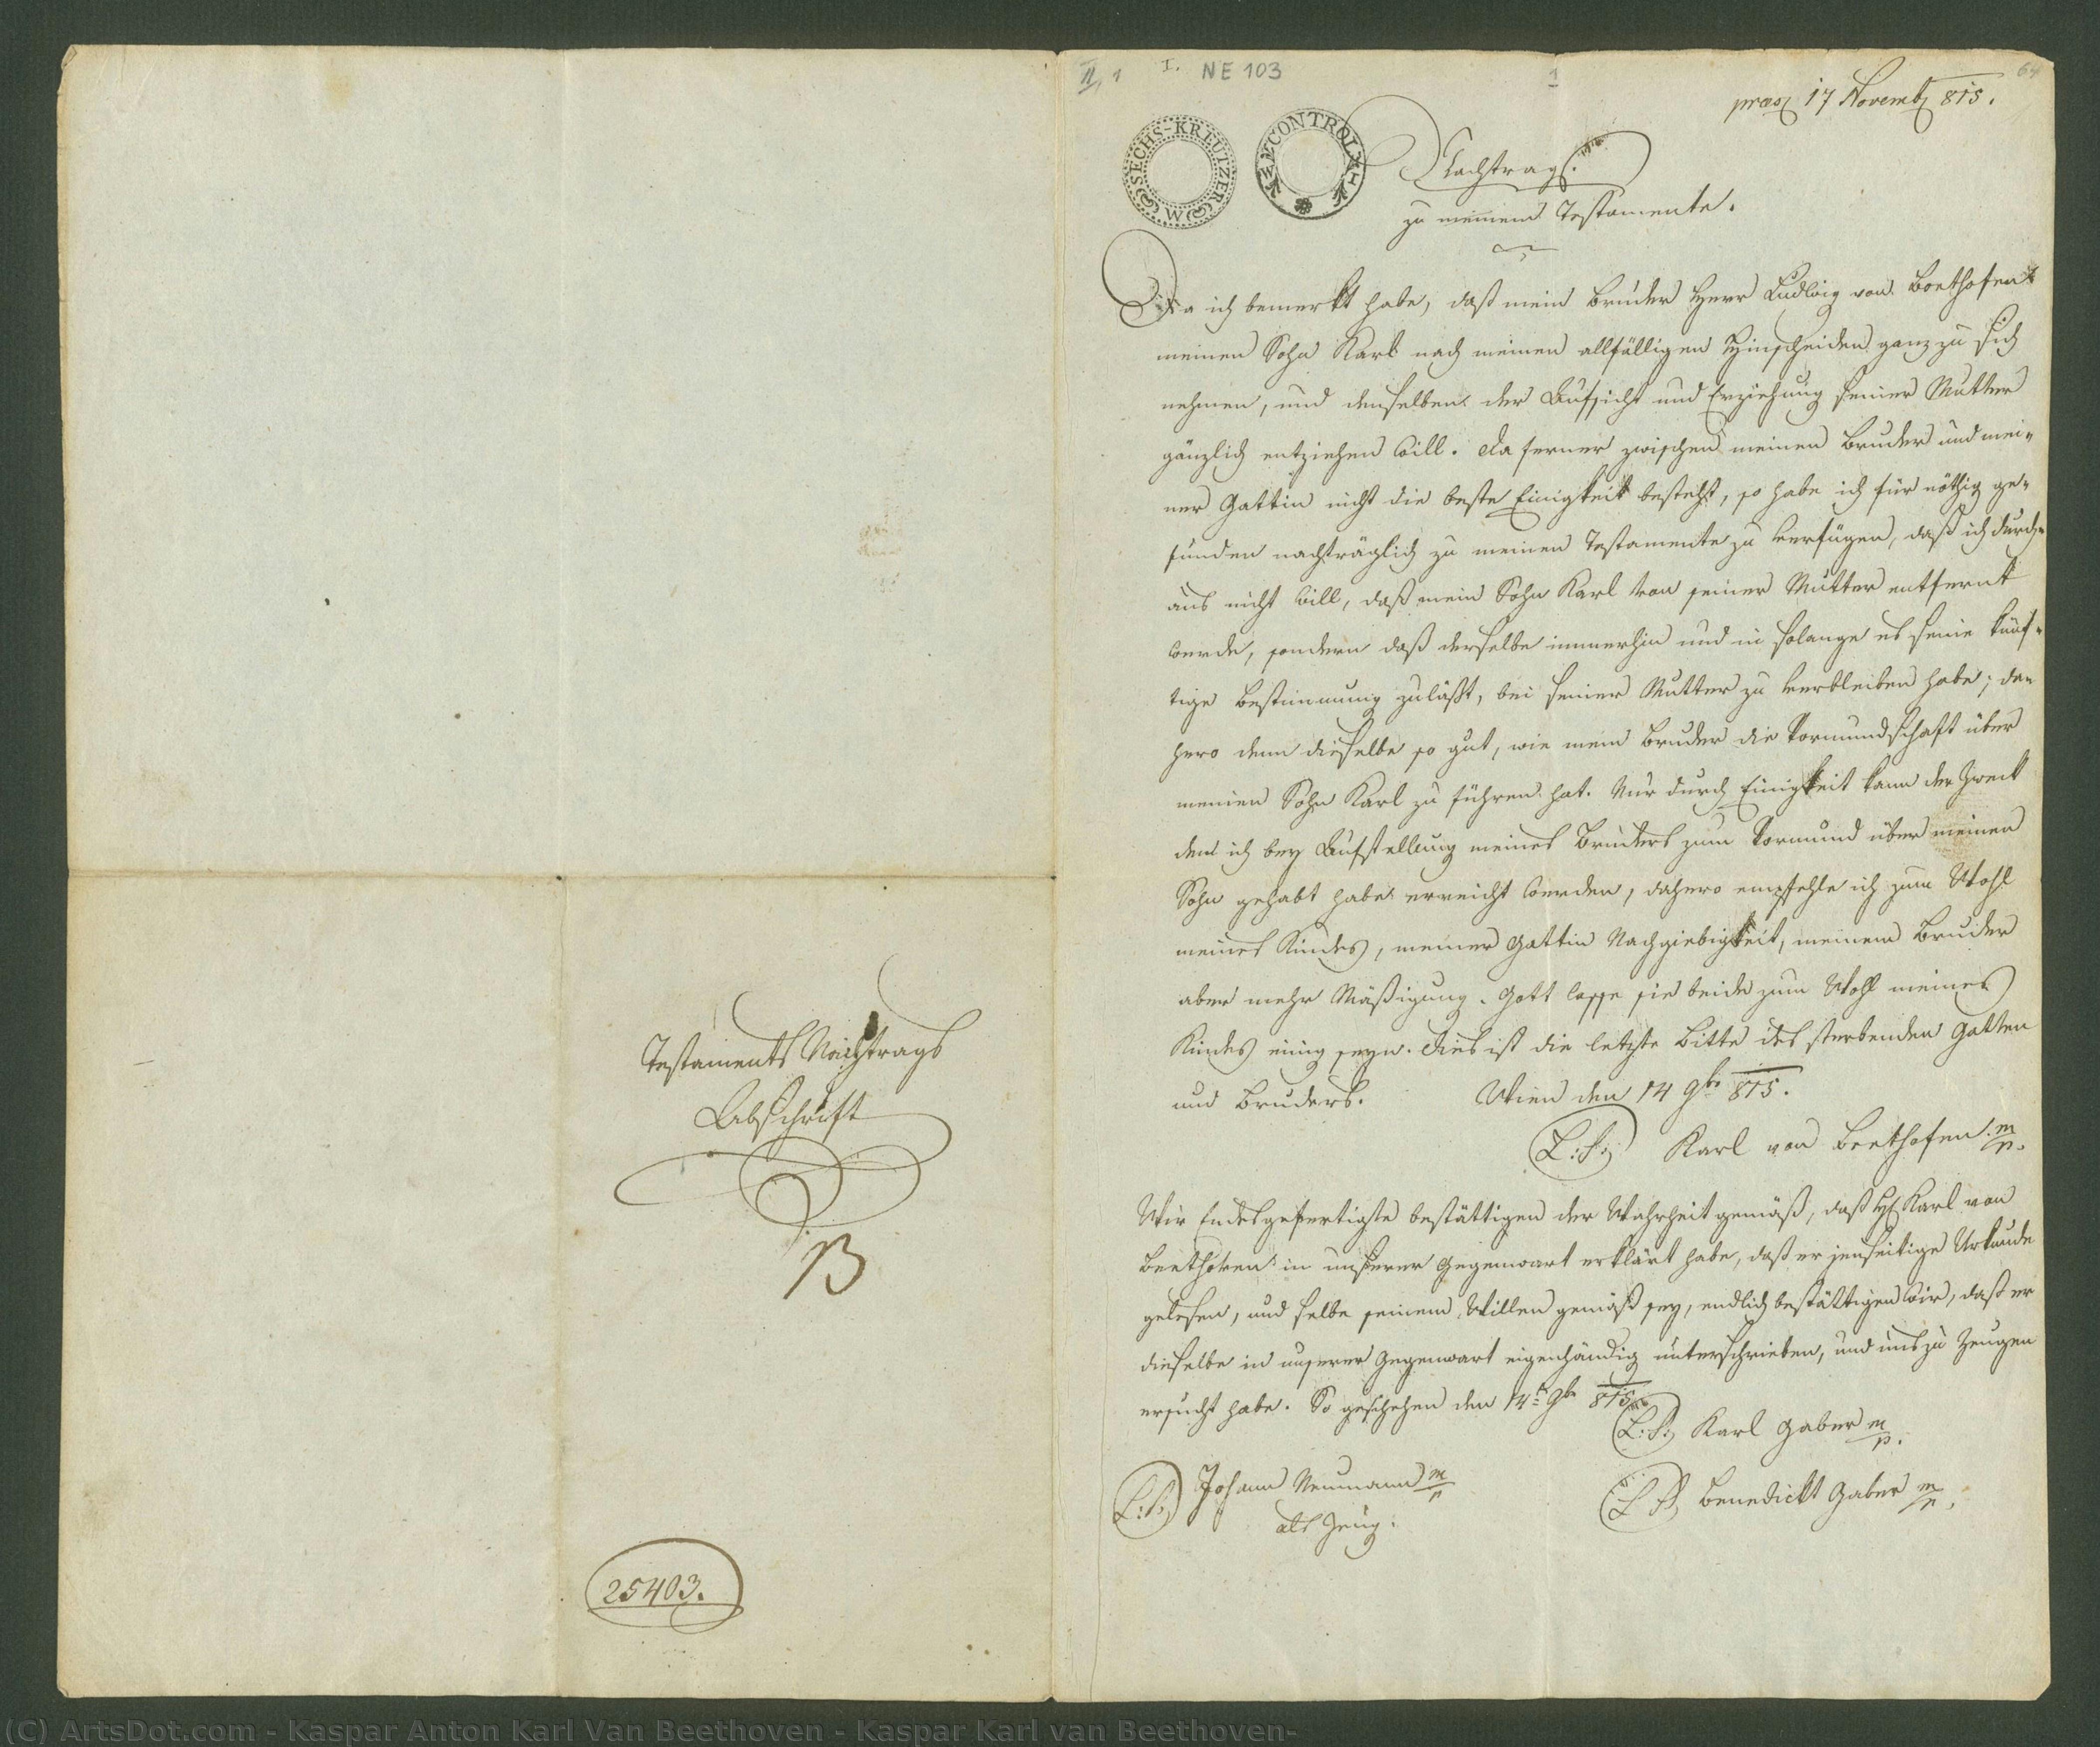 Testaments Nachtrags
Abschrift
B
25403.
II, 1 I. NE 103
1
64
præs. 17 Novemb 815.
SECHS-KREUTZER W
CONTROL
Nachtrag
zu meinem Testamente.
Da ich bemerkt habe, daß mein Bruder Herr Ludwig van Beethofen
meinen Sohn Karl nach meinen allfälligen Hinscheiden ganz zu sich
nehmen, und denselben der Aufsicht und Erziehung seiner Mutter
gänzlich entziehen will. Da ferner zwischen meinen Bruder und mei-
ner Gattin nicht die beste Einigkeit besteht, so habe ich für nöthig ge-
funden nachträglich zu meinen Testamente zu verfügen, daß ich durch-
aus nicht will, daß mein Sohn Karl von seiner Mutter entfernt
werde, sondern daß derselbe immerhin und in solange es seine künf-
tige Bestimmung zuläßt, bei seiner Mutter zu verbleiben habe; da-
hero denn dieselbe so gut, wie mein Bruder die Vormundschaft über
meinen Sohn Karl zu führen hat. Nur durch Einigkeit kann der Zweck
den ich bey Aufstellung meines Bruders zum Vormund über meinen
Sohn gehabt habe erreicht werden, dahero empfehle ich zum Wohl
meines Kindes, meiner Gattin Nachgiebigkeit, meinem Bruder
aber mehr Mäßigung. Gott lasse sie beide zum Wohl meines
Kindes einig seyn. Dies ist die letzte Bitte des sterbenden Gatten
und Bruders. Wien den 14 9br 815.
(L:S:) Karl van Beethofen m/p.
Wir Endesgefertigte bestättigen der Wahrheit gemäß, daß H. Karl van
Beethoven in unserer Gegenwart erklärt habe, daß er jenseitige Urkunde
gelesen, und selbe seinem Willen gemäß sey, endlich bestättigen wir, daß er
dieselbe in unserer Gegenwart eigenhändig unterschrieben, und uns zu Zeugen
ersucht habe. So geschehen den 14t 9br 815
(L:S:) Karl Gaber m/p.
(L:S:) Johann Neumann m/p
als Zeug.
(L S) Benedickt Gaber m/p.
(C) ArtsDot.com - Kaspar Anton Karl Van Beethoven - Kaspar Karl van Beethoven-